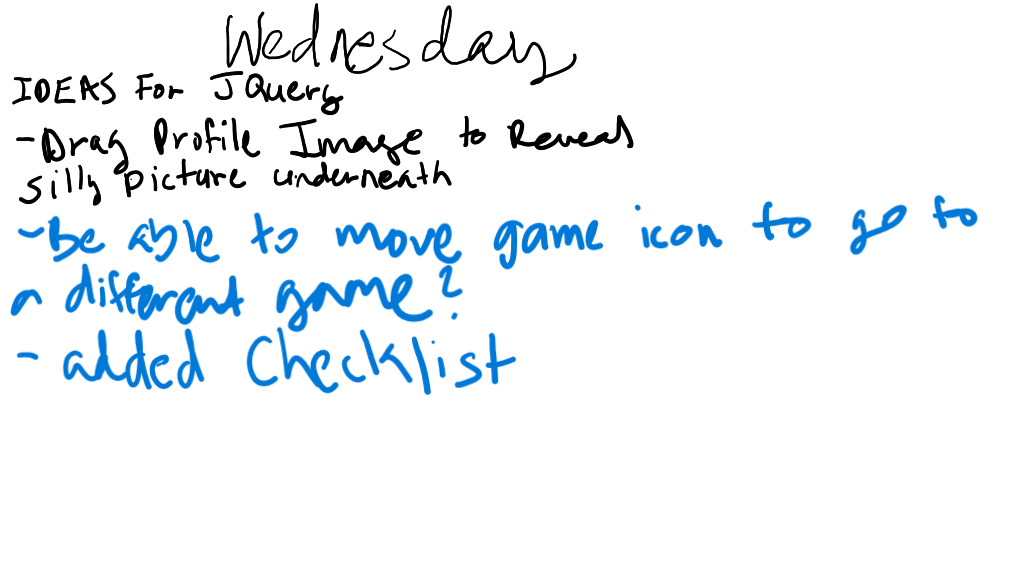 Wednesday
IDEAS For JQuery
- Drag Profile Image to Reveal
silly picture underneath
- Be able to move game icon to go to
a different game?
- added Checklist